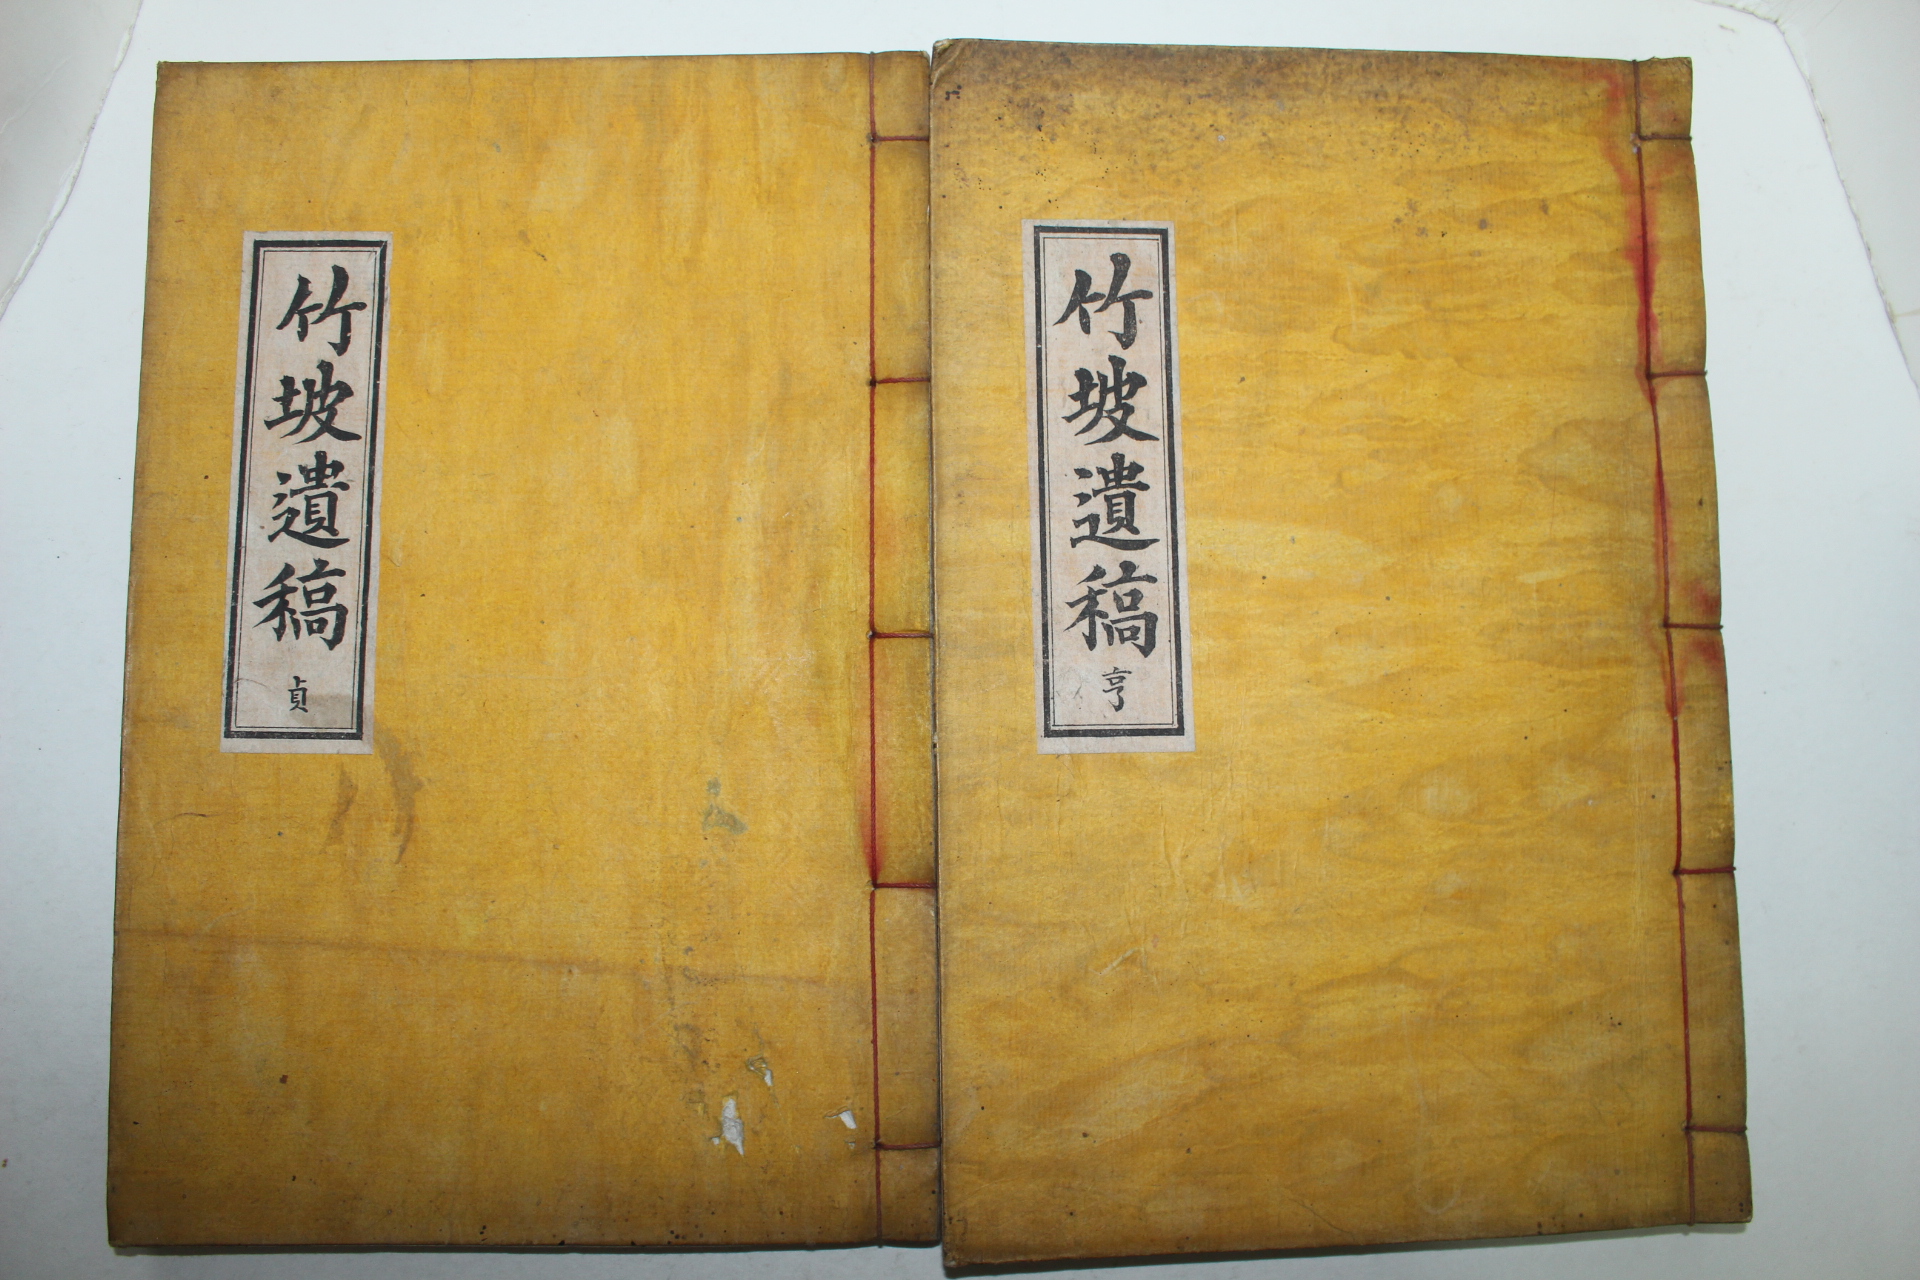 竹坡遺稿 亨
竹坡遺稿 貞